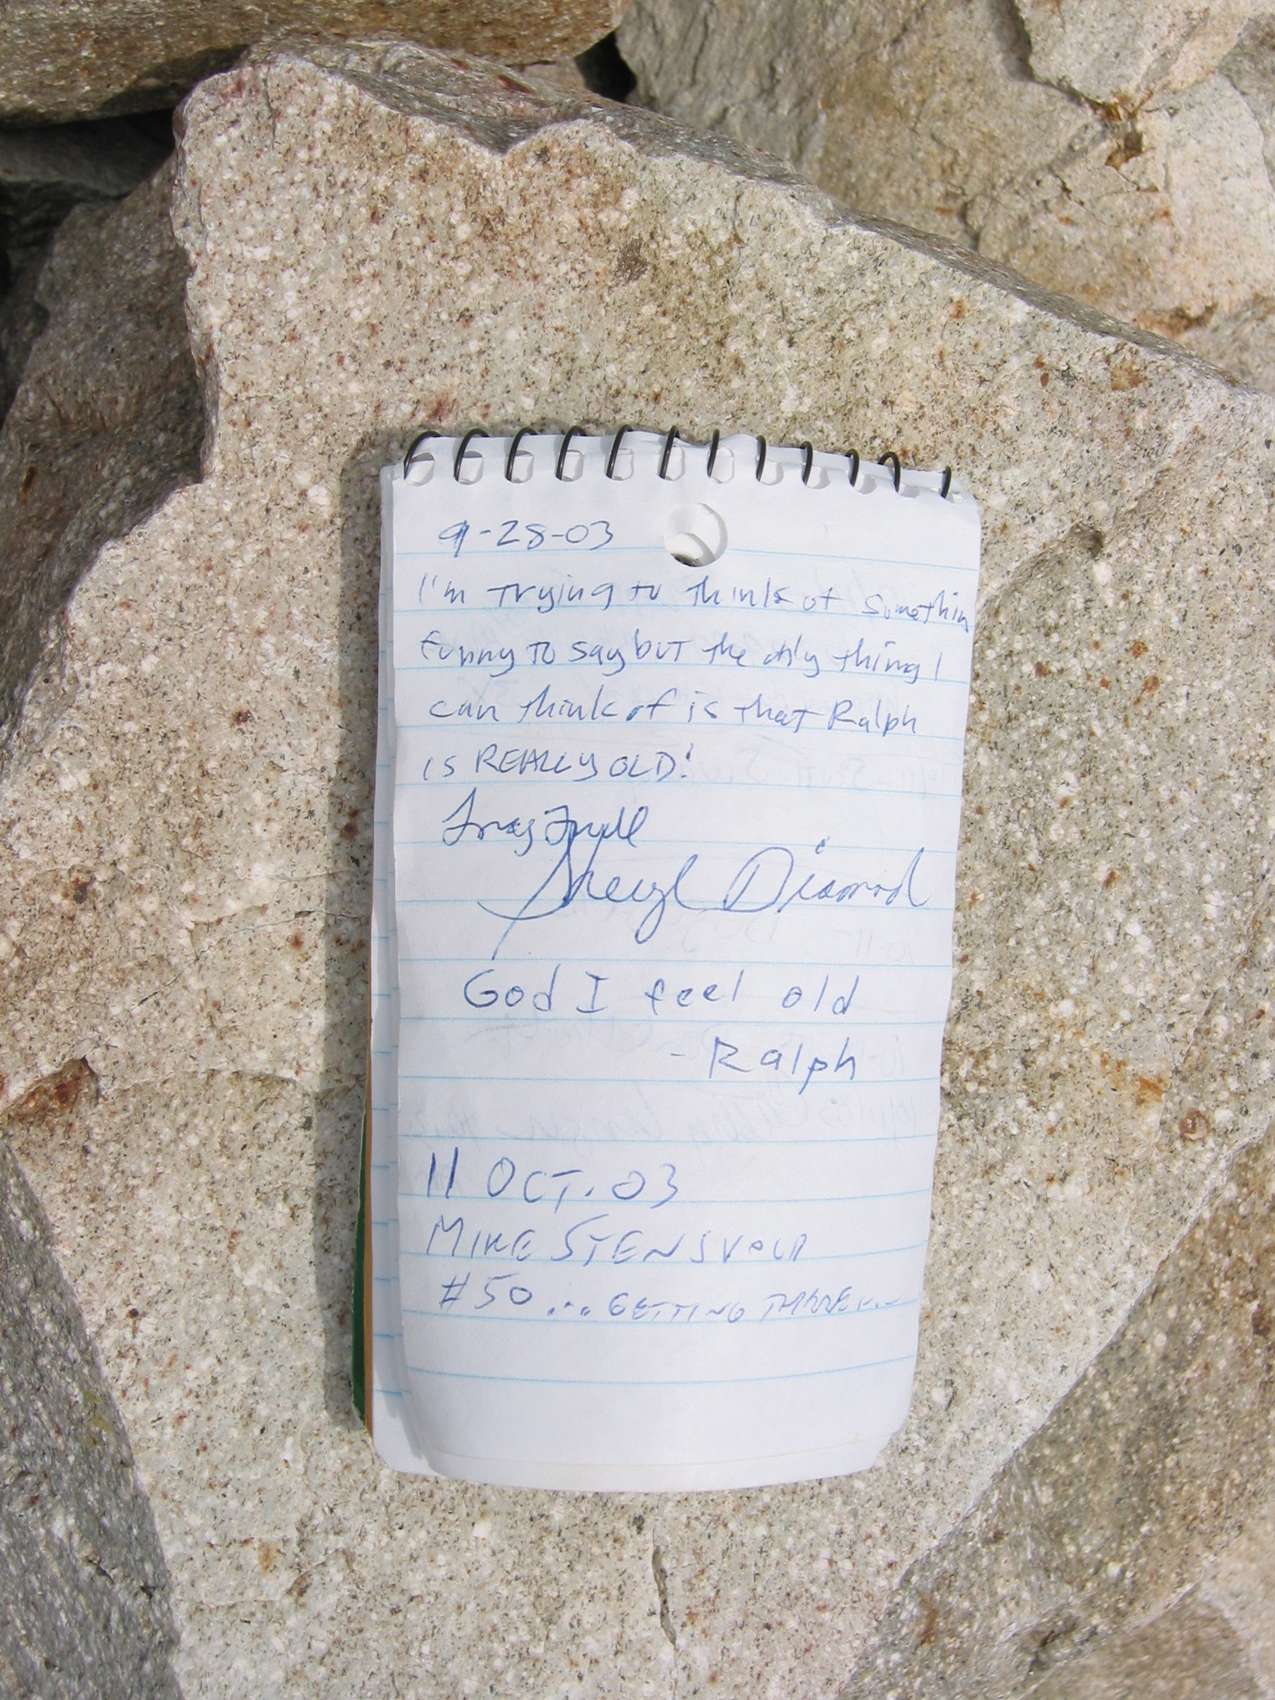 9-28-03
I'm trying to think of somethin
funny to say but the only thing I
can think of is that Ralph
is REALLY OLD!
Sheryl Diamond
God I feel old
- Ralph
11 OCT. 03
MIKE STENSVOLD
#50 ... GETTING THERE...